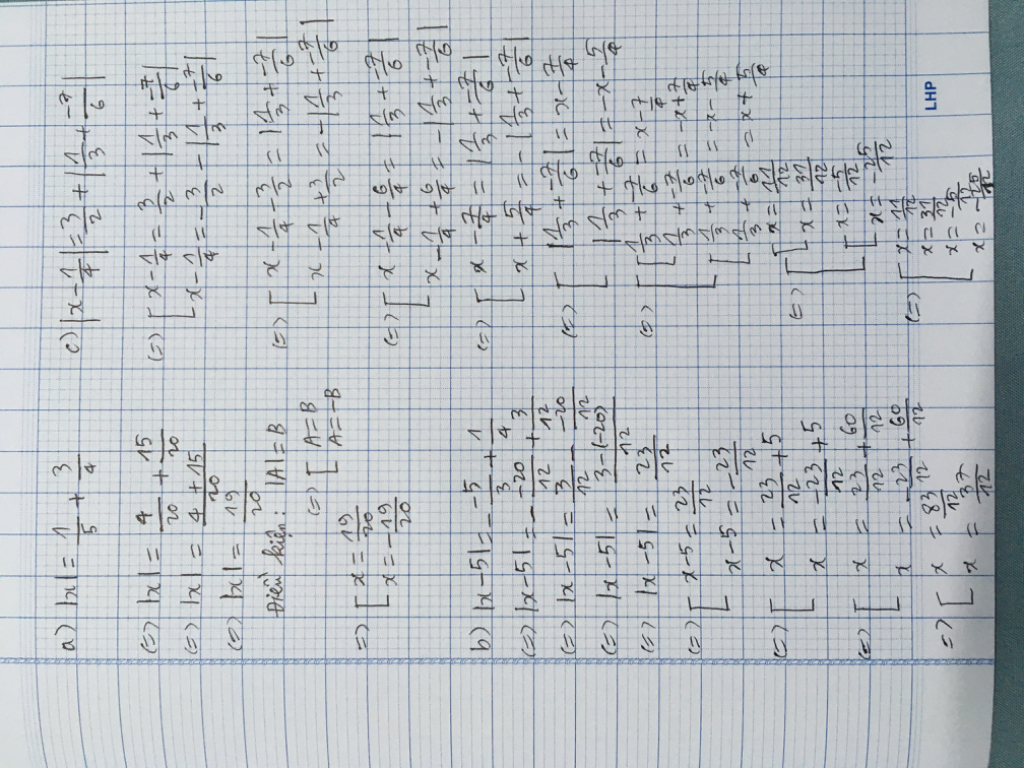 a) |x| = 1/5 + 3/4
(=) |x| = 4/20 + 15/20
(=) |x| = (4 + 15)/20
(=) |x| = 19/20
Điều kiện: |A| = B
(=) [ A = B
A = -B
=) [ x = 19/20
x = -19/20
b) |x - 5| = - -5/3 + 1/4
(=) |x - 5| = - -20/12 + 3/12
(=) |x - 5| = 3/12 - -20/12
(=) |x - 5| = (3 - (-20))/12
(=) |x - 5| = 23/12
(=) [ x - 5 = 23/12
x - 5 = -23/12
(=) [ x = 23/12 + 5
x = -23/12 + 5
(=) [ x = 23/12 + 60/12
x = -23/12 + 60/12
=) [ x = 83/12
x = 37/12
c) |x - 1/4| = 3/2 + |1/3 + -7/6|
(=) [ x - 1/4 = 3/2 + |1/3 + -7/6|
x - 1/4 = -3/2 - |1/3 + -7/6|
(=) [ x - 1/4 - 3/2 = |1/3 + -7/6|
x - 1/4 + 3/2 = -|1/3 + -7/6|
(=) [ x - 1/4 - 6/4 = |1/3 + -7/6|
x - 1/4 + 6/4 = -|1/3 + -7/6|
(=) [ x - 7/4 = |1/3 + -7/6|
x + 5/4 = -|1/3 + -7/6|
(=) [ |1/3 + -7/6| = x - 7/4
|1/3 + -7/6| = -x - 5/4
(=) [ [ 1/3 + -7/6 = x - 7/4
1/3 + -7/6 = -x + 7/4
[ 1/3 + -7/6 = -x - 5/4
1/3 + -7/6 = x + 5/4
(=) [ [ x = 11/12
x = 31/12
[ x = -5/12
x = -25/12
(=) [ x = 11/12
x = 31/12
x = -5/12
x = -25/12
LHP